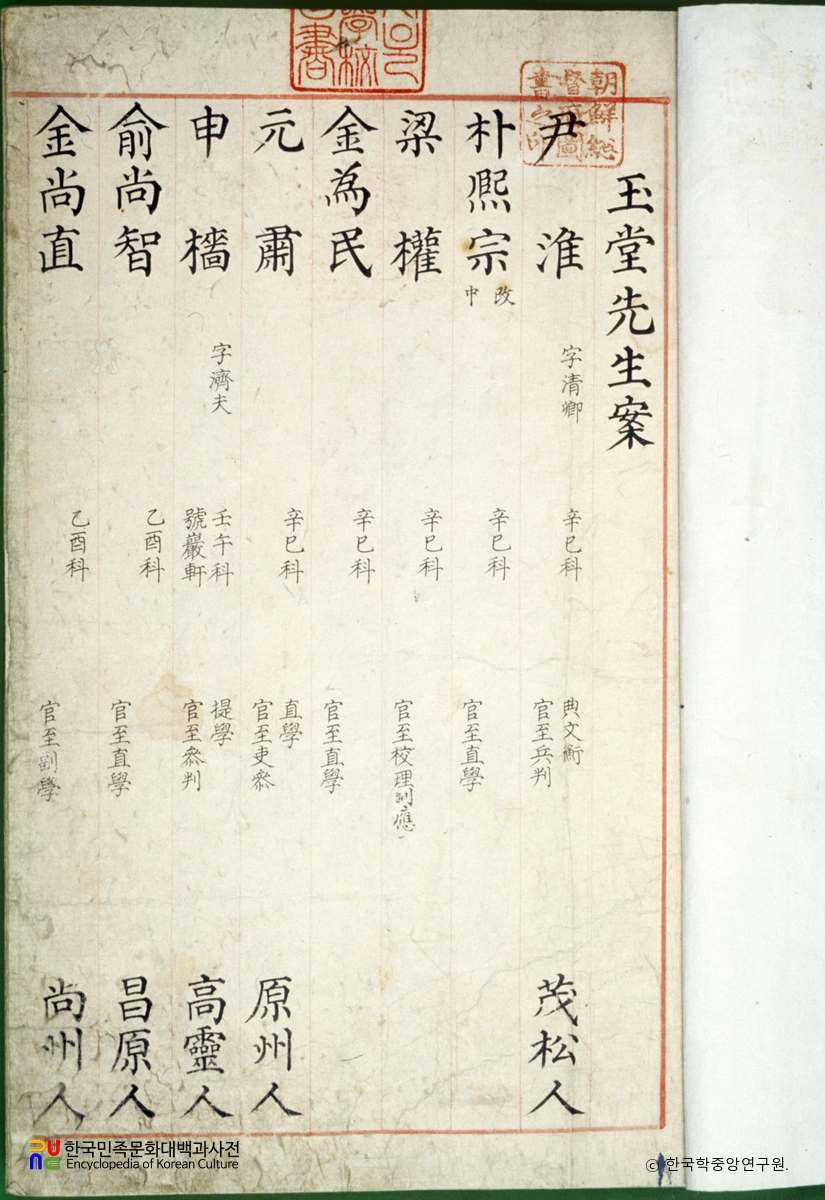 玉堂先生案
尹淮 字清卿 辛巳科 典文衡 官至兵判 茂松人
朴熙宗 改 中 辛巳科 官至直學
梁權 辛巳科 官至校理 副應
金為民 辛巳科 官至直學
元肅 辛巳科 直學 官至吏叅 原州人
申檣 字濟夫 壬午科 號巖軒 提學 官至叅判 高靈人
俞尚智 乙酉科 官至直學 昌原人
金尚直 乙酉科 官至副學 尚州人
朝鮮總
督府圖
書之印
한국민족문화대백과사전
Encyclopedia of Korean Culture
ⓒ 한국학중앙연구원.